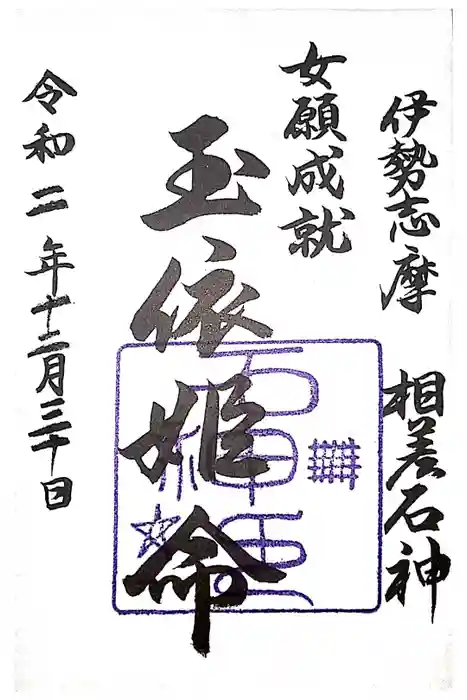 伊勢志摩 相差石神
女願成就
玉依姫命
令和二年十二月三十日